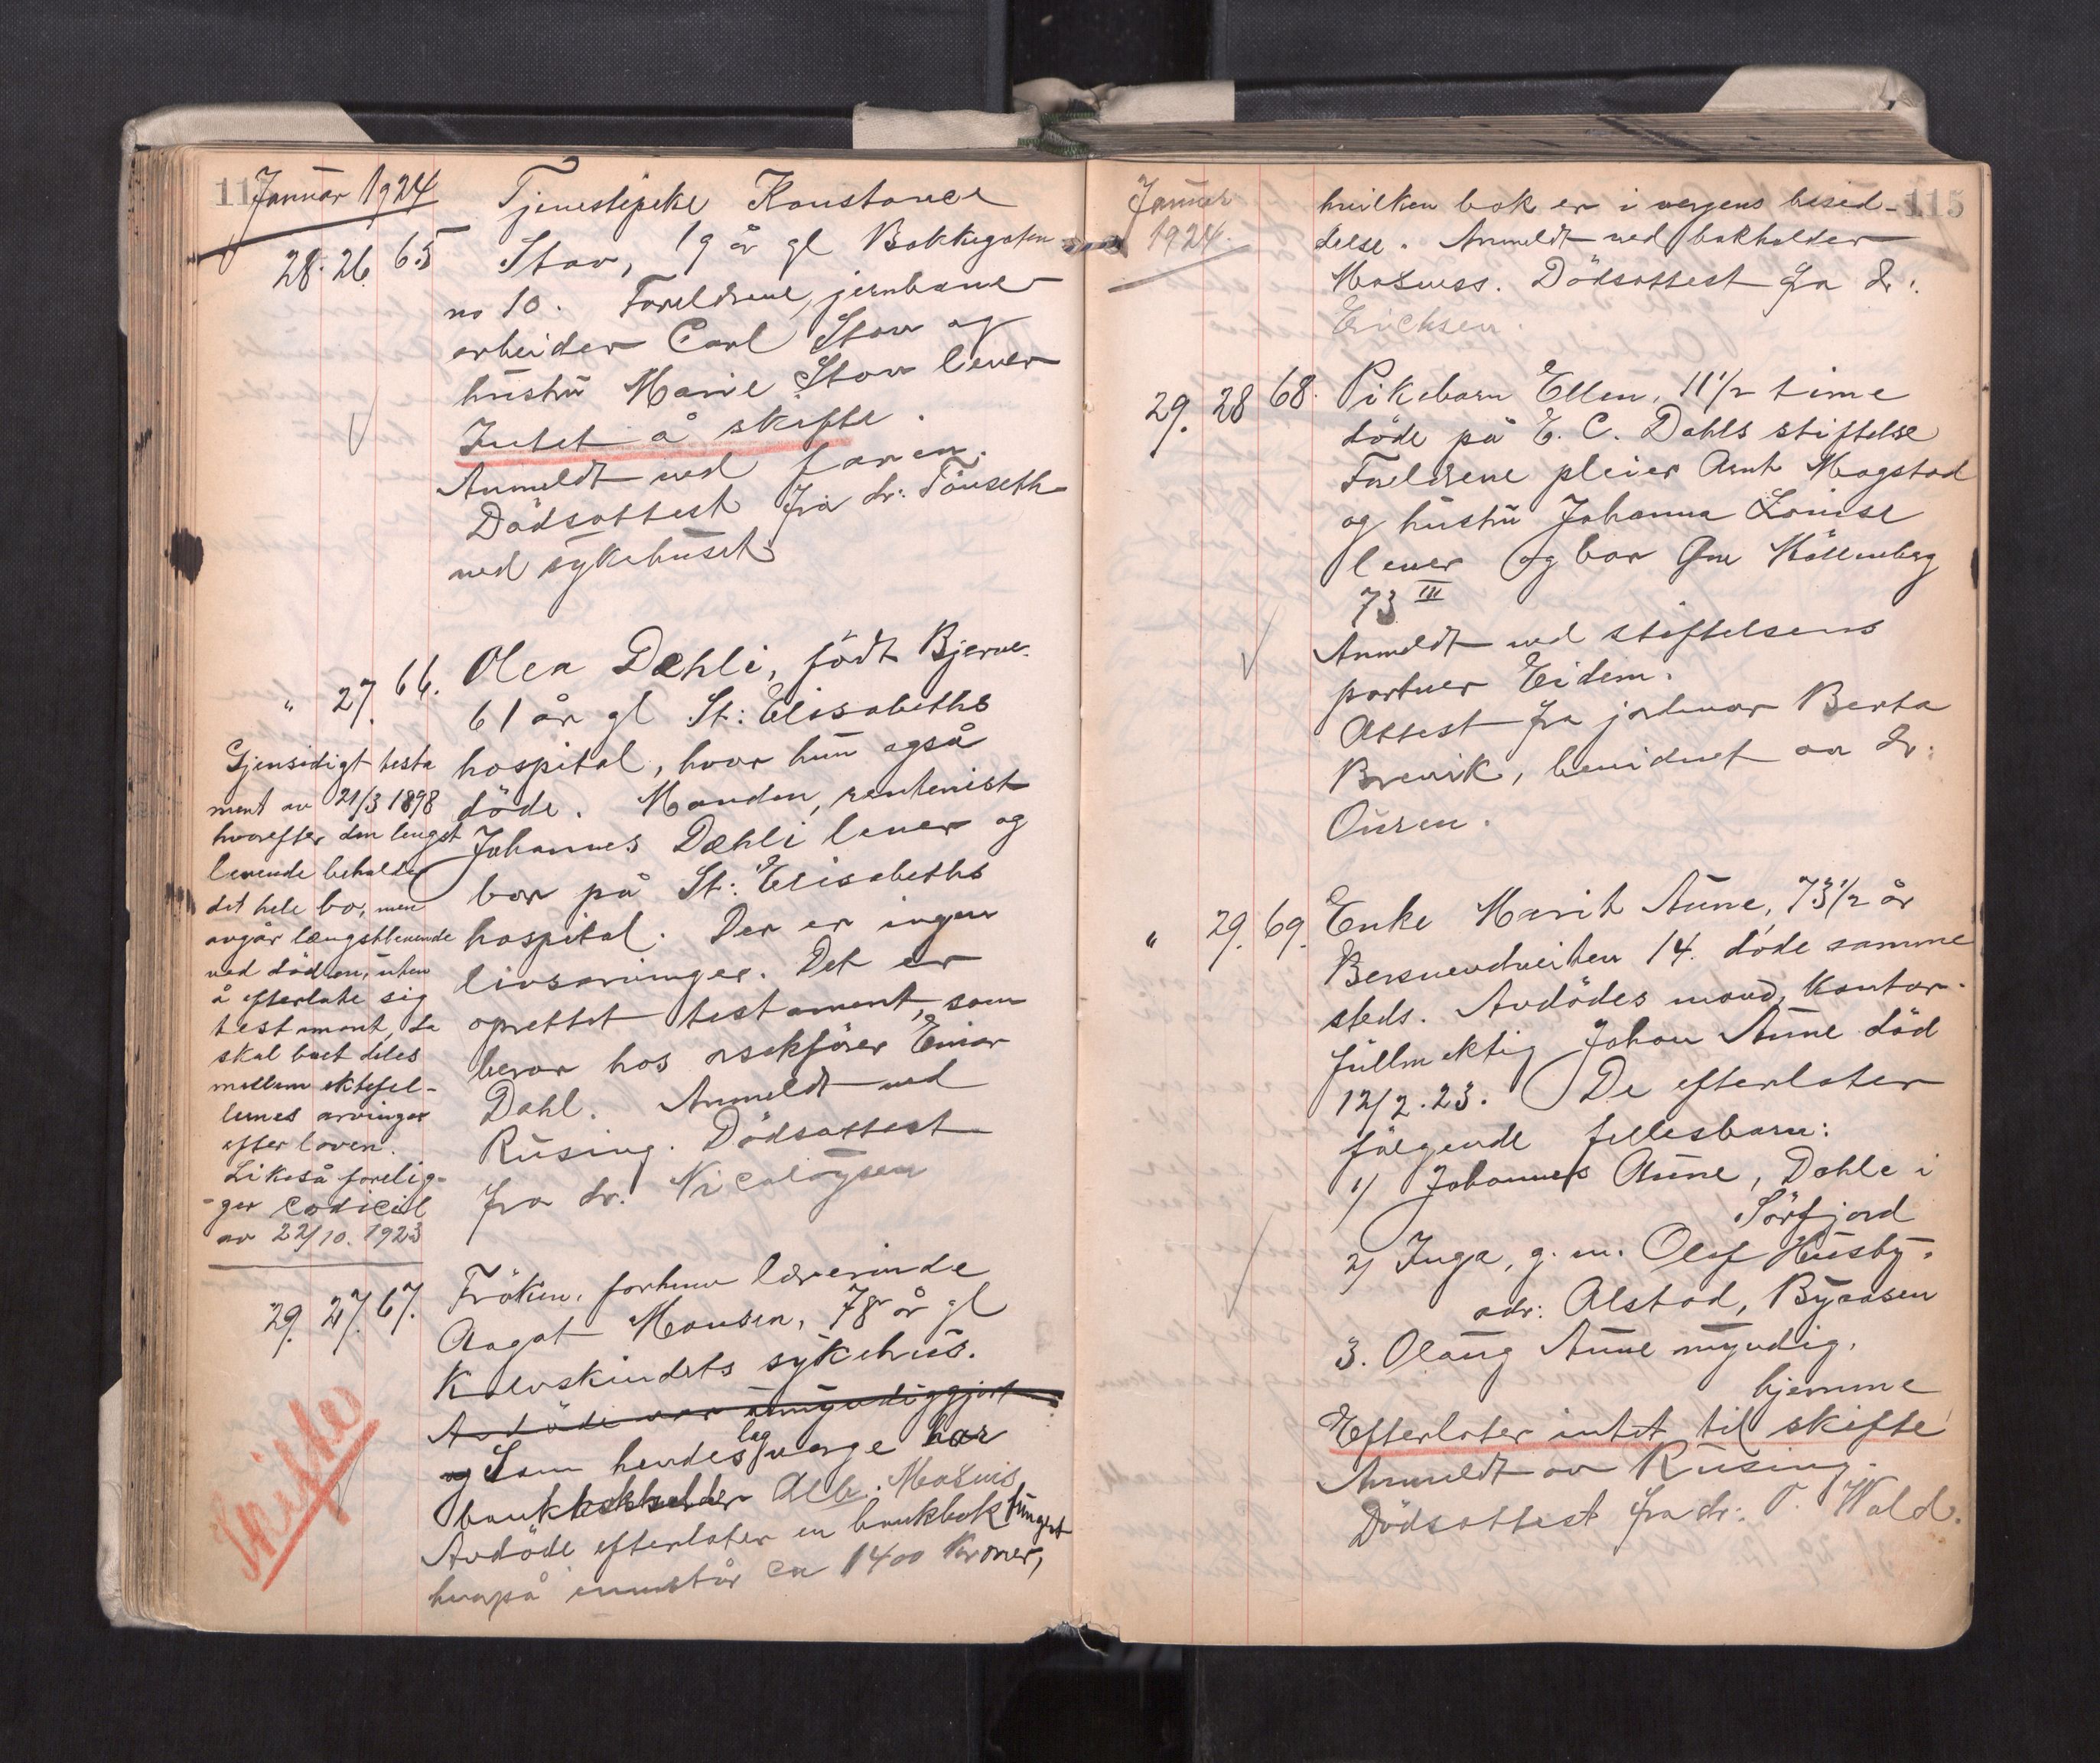 Januar 1924
28. 26. 65 Tjenestepike Konstance
Stav, 19 år gl Bakkegaten
no 10. Foreldrene, jernbane-
arbeider Carl Stav og
hustru Marie Stav lever
Intet å skifte.
Anmeldt ved faren.
Dödsattest fra dr: Tönseth
ved sykehuset
" 27. 66. Olea Dæhli, födt Bjerve.
61 år gl St: Elisabeths
hospital, hvor hun også
döde. Manden, rentenist
Johannes Dæhli lever og
bor på St: Elisabeths
hospital. Der er ingen
livsarvinger. Det er
oprettet testament, som
beror hos orsakfører Einar
Dahl. Anmeldt ved
Rusing. Dödsattest
fra dr. Nicolaysen
Gjensidigt testa
ment av 21/3 1898
hvorefter den lengst
levende beholder
det hele bo, men
avgår længstlevende
ved döden, uten
å efterlate sig
testament, da
skal boet deles
mellem ektefel-
lenes arvinger
efter loven.
Likeså forelig-
-ger codicil
av 22/10. 1923
29. 27. 67. Fröken, forhenv lærerinde
Aagot Monsen, 78 år gl
Kalvskindets sykehus.
Avdöde var umyndiggjort
og Som hendes lagverge har
bankbokholder Alb. Mosnes fungert
Avdöde efterlater en bankbok
hvorpå innestår ca 1400 kroner,
Skifte
115
Januar
1924.
hvilken bok er i vergens besid-
delse. Anmeldt ved bokholder
Mosness. Dödsattest fra dr.
Erichsen.
29. 28 68. Pikebarn Ellen, 11 1/2 time
döde på E. C. Dahls stiftelse
Foreldrene pleier Arnt Mogstad
og hustru Johanna Louise
lever og bor Övre Möllenberg
73 III
Anmeldt ved stiftelsens
portner Eidem.
Attest fra jordmor Berta
Brevik, bevidnet av dr:
Ouren.
" 29. 69. Enke Marit Aune, 73 1/2 år
Bersvendveiten 14. döde samme
steds. Avdödes mand, kontor-
fullmektig Johan Aune död
12/2. 23. De efterlater
fölgende fellesbarn:
1) Johannes Aune, Dahle i
Sörfjord
2) Inga, g. m. Olaf Husby.
adr: Alstad, Byaasen
3. Olaug Aune myndig.
hjemme
Efterlater intet til skifte
Anmeldt av Rusing.
Dödsattest fra dr: P. Wald.